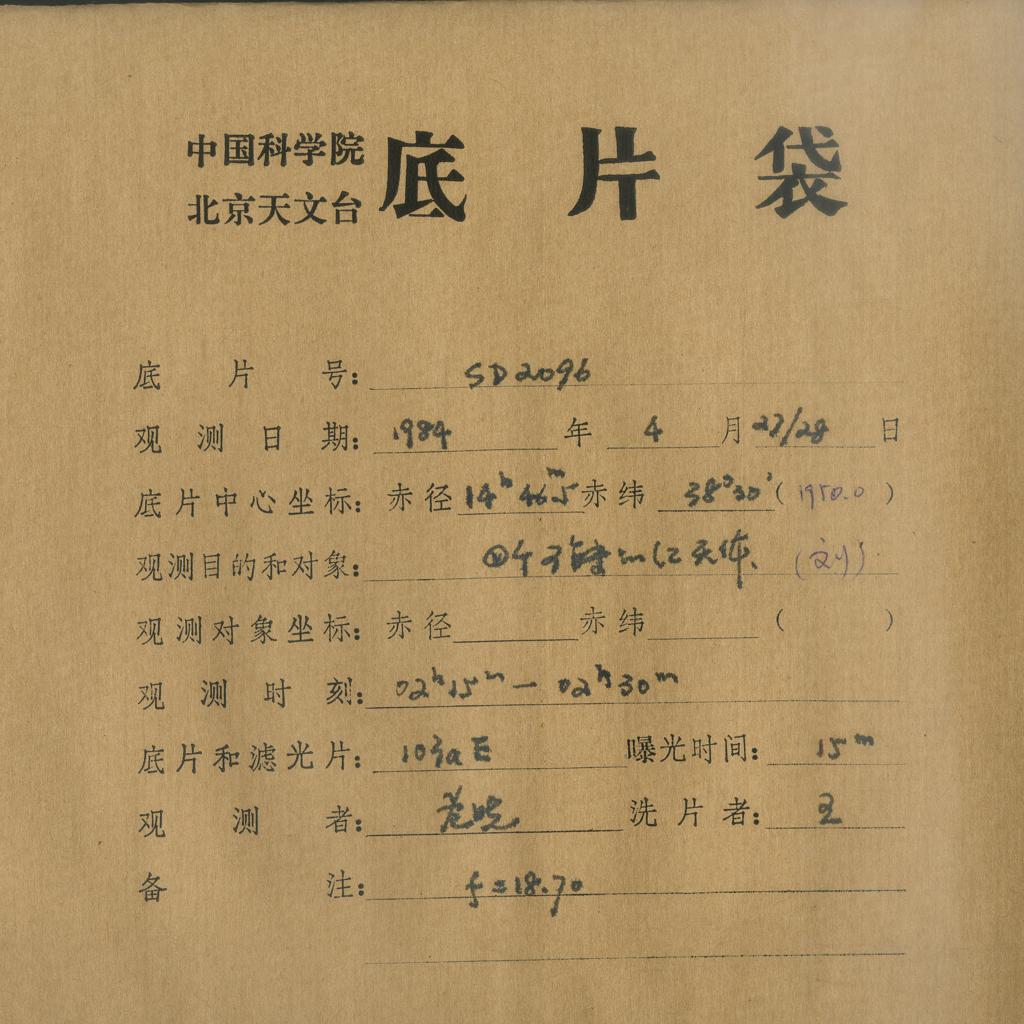 中国科学院
北京天文台
底片袋
底片号: SD2096
观测日期: 1984 年 4 月 27/28 日
底片中心坐标: 赤径 14ʰ46ᵐ.5 赤纬 38°30′ (1950.0)
观测目的和对象: 的红天体 (刘)
观测对象坐标: 赤径 赤纬 ( )
观测时刻: 02ʰ15ᵐ — 02ʰ30ᵐ
底片和滤光片: 103aE 曝光时间: 15ᵐ
观测者: 洗片者: 王
备注: f=18.70